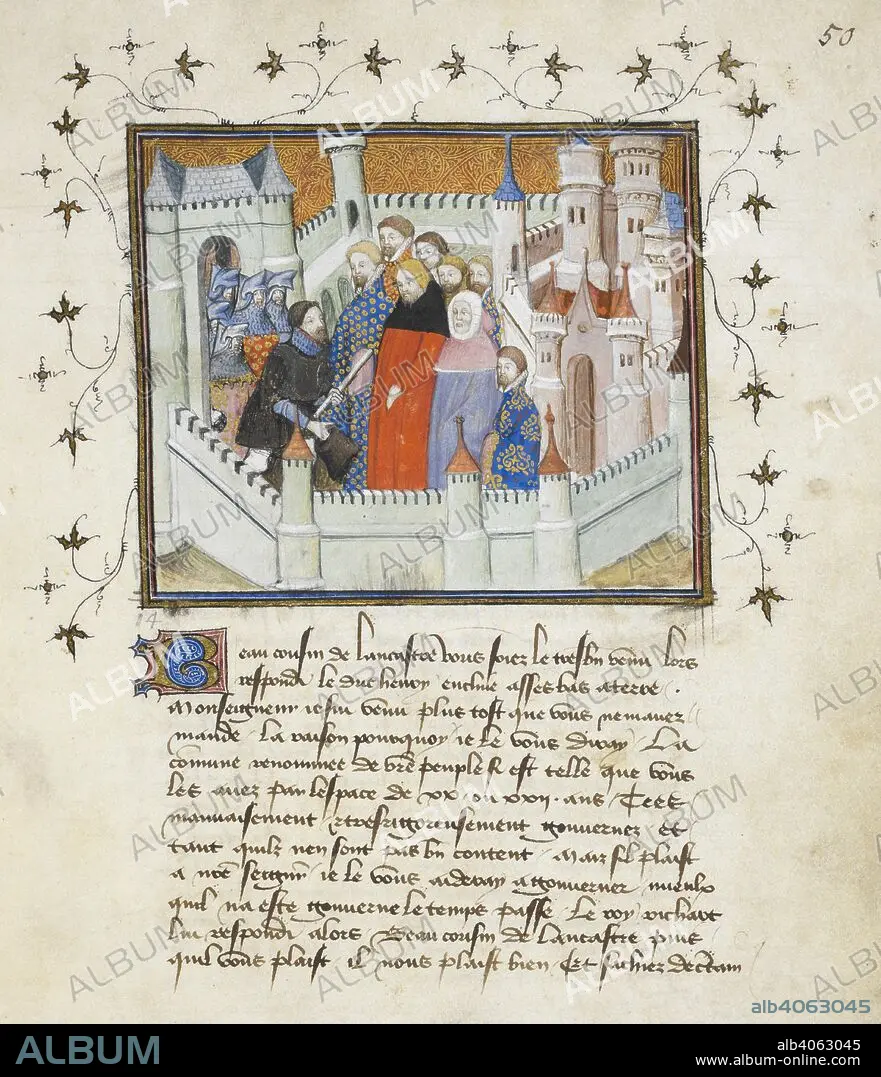 50
14
Beau cousin de lancastre vous soiez le tresbn venu lors
respondi le duc henry encline asses bas a terre .
Monseigneur ie sui venu plus tost que vous ne mauez
mande . la raison pourquoy ie le vous diray . La
comune renommee de vre peuple si est telle que vous
les auez par lespace de xx ou xxii . ans . tres
mauuaisement et tresrigoreusement gouuernez et
tant quilz nen sont pas bn content . Mais sil plaist
a nre seigneur ie le vous aideray a gouuerner mieulx
quil na este gouuerne le temps passe . Le roy richart
lui respondi alors . Beau cousin de lancastre puis
quil vous plaist . il nous plaist bien . Et sachiez de
ALBUM
alb4063045
ALBUM
alb4063045
www.album-online.com